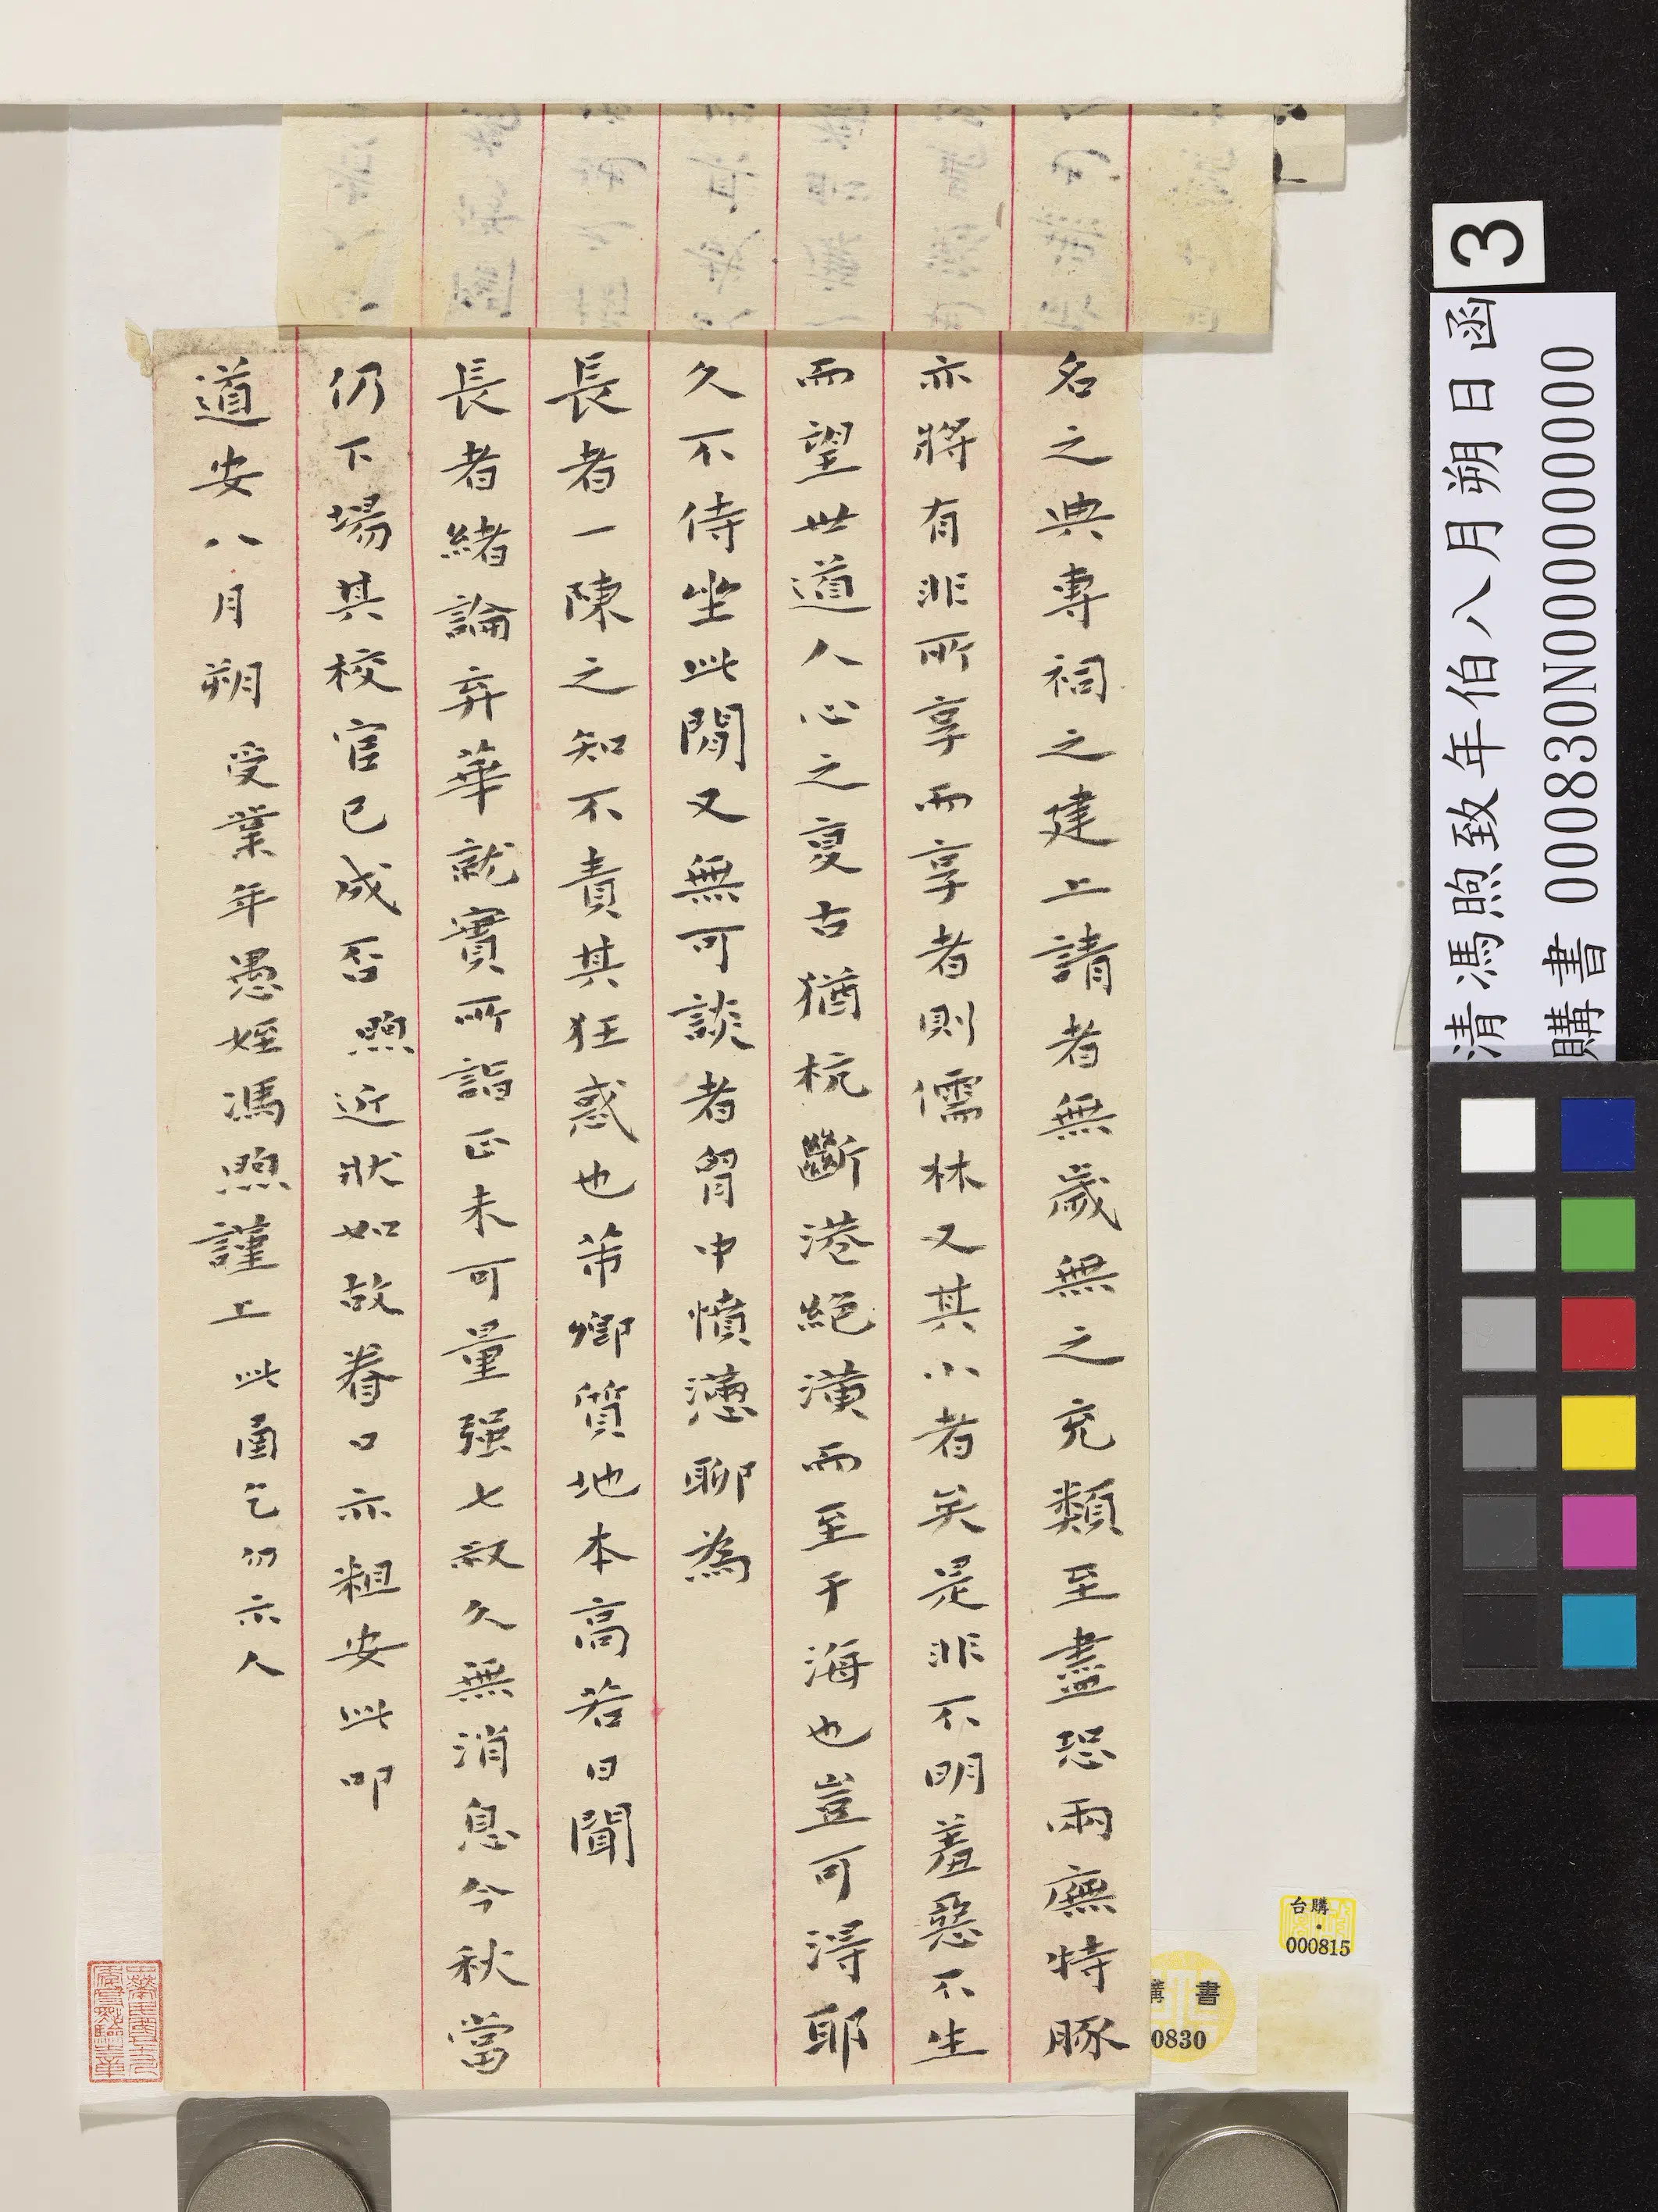 名之典專祠之建上請者無歲無之充類至盡恐兩廡特豚
亦將有非所享而享者則儒林又其小者矣是非不明羞惡不生
而望世道人心之夐古猶杭斷港絕潢而至于海也豈可得耶
久不侍坐此間又無可談者胷中憤懣聊為
長者一陳之知不責其狂惑也芾卿質地本高若日聞
長者緒論弃華就實所詣正未可量强七叔久無消息今秋當
仍下場其校官已成否煦近狀如故眷口亦粗安此叩
道安八月朔 受業年愚姪馮煦謹上 此函乞仍示人
3
清馮煦致年伯八月朔日函
購書 000830N000000000
台購
000815
購書
0830